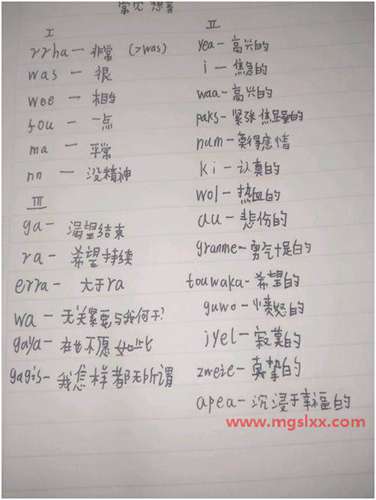 常见
I
rrha — 非常 (>was)
was — 很
wee — 相当
fou — 一点
ma — 平常
nn — 没精神
III
ga — 渴望结束
ra — 希望持续
erra — 大于ra
wa — 无关紧要与我何干?
gaya — 在也不愿如此
gagis — 我怎样都无所谓
II
yea - 高兴的
i - 焦急的
waa - 高兴的
paks - 紧张焦虑的
num - 莫得感情
ki - 认真的
wol - 热血的
au - 悲伤的
granme - 勇气十足的
touwaka - 希望的
guwo - 愤怒的
jyel - 寂寞的
zweie - 真挚的
apea - 沉浸于幸福的
www.mgslxx.com